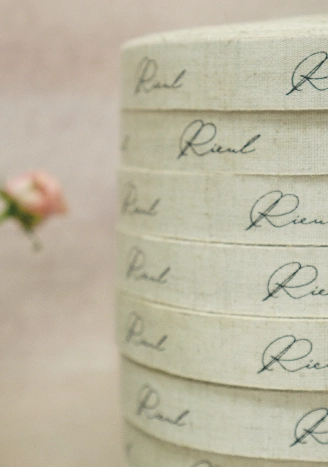 Rieul R
Rieul
Rieul Rieu
Rieul Rie
Rieul Rie
Rieul R